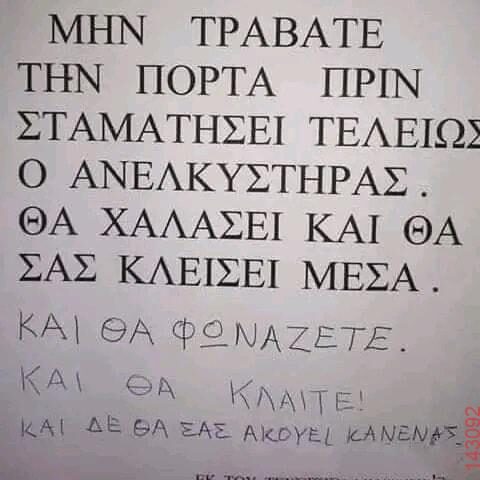 ΜΗΝ ΤΡΑΒΑΤΕ
ΤΗΝ ΠΟΡΤΑ ΠΡΙΝ
ΣΤΑΜΑΤΗΣΕΙ ΤΕΛΕΙΩΣ
Ο ΑΝΕΛΚΥΣΤΗΡΑΣ.
ΘΑ ΧΑΛΑΣΕΙ ΚΑΙ ΘΑ
ΣΑΣ ΚΛΕΙΣΕΙ ΜΕΣΑ.
ΚΑΙ ΘΑ ΦΩΝΑΖΕΤΕ.
ΚΑΙ ΘΑ ΚΛΑΙΤΕ!
ΚΑΙ ΔΕ ΘΑ ΣΑΣ ΑΚΟΥΕΙ ΚΑΝΕΝΑΣ.
143092